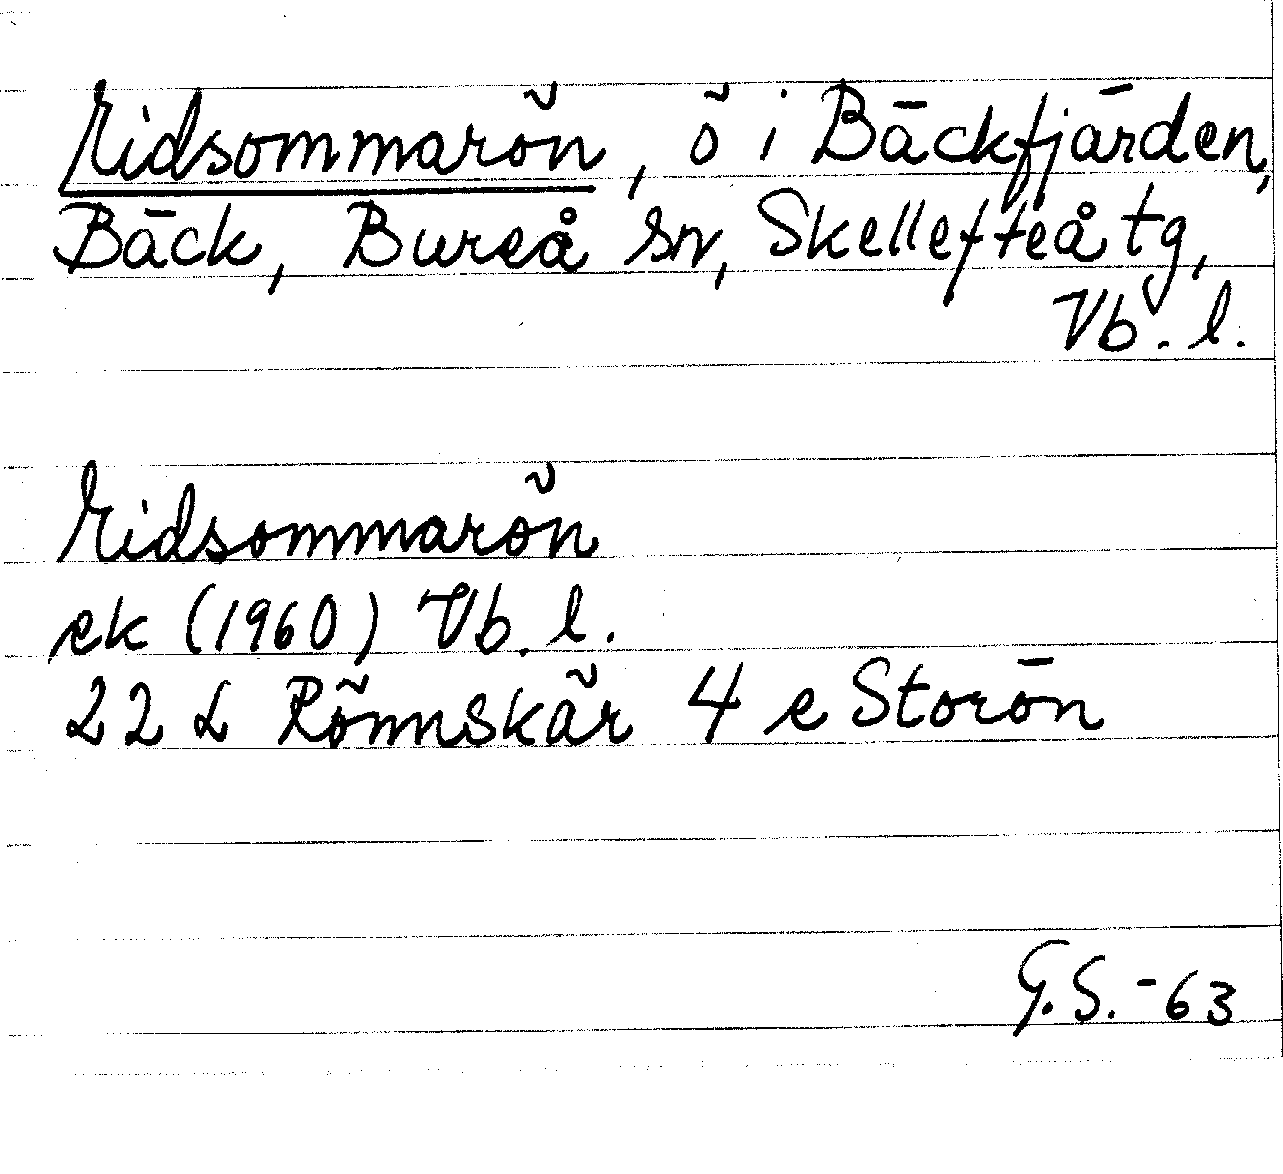 Midsommarön, ö i Bäckfjärden,
Bäck, Bureå sn, Skellefteå tg,
Vb. l.
Midsommarön
ek (1960) Vb. l.
22 L Rönnskär 4 e Storön
G.S.-63